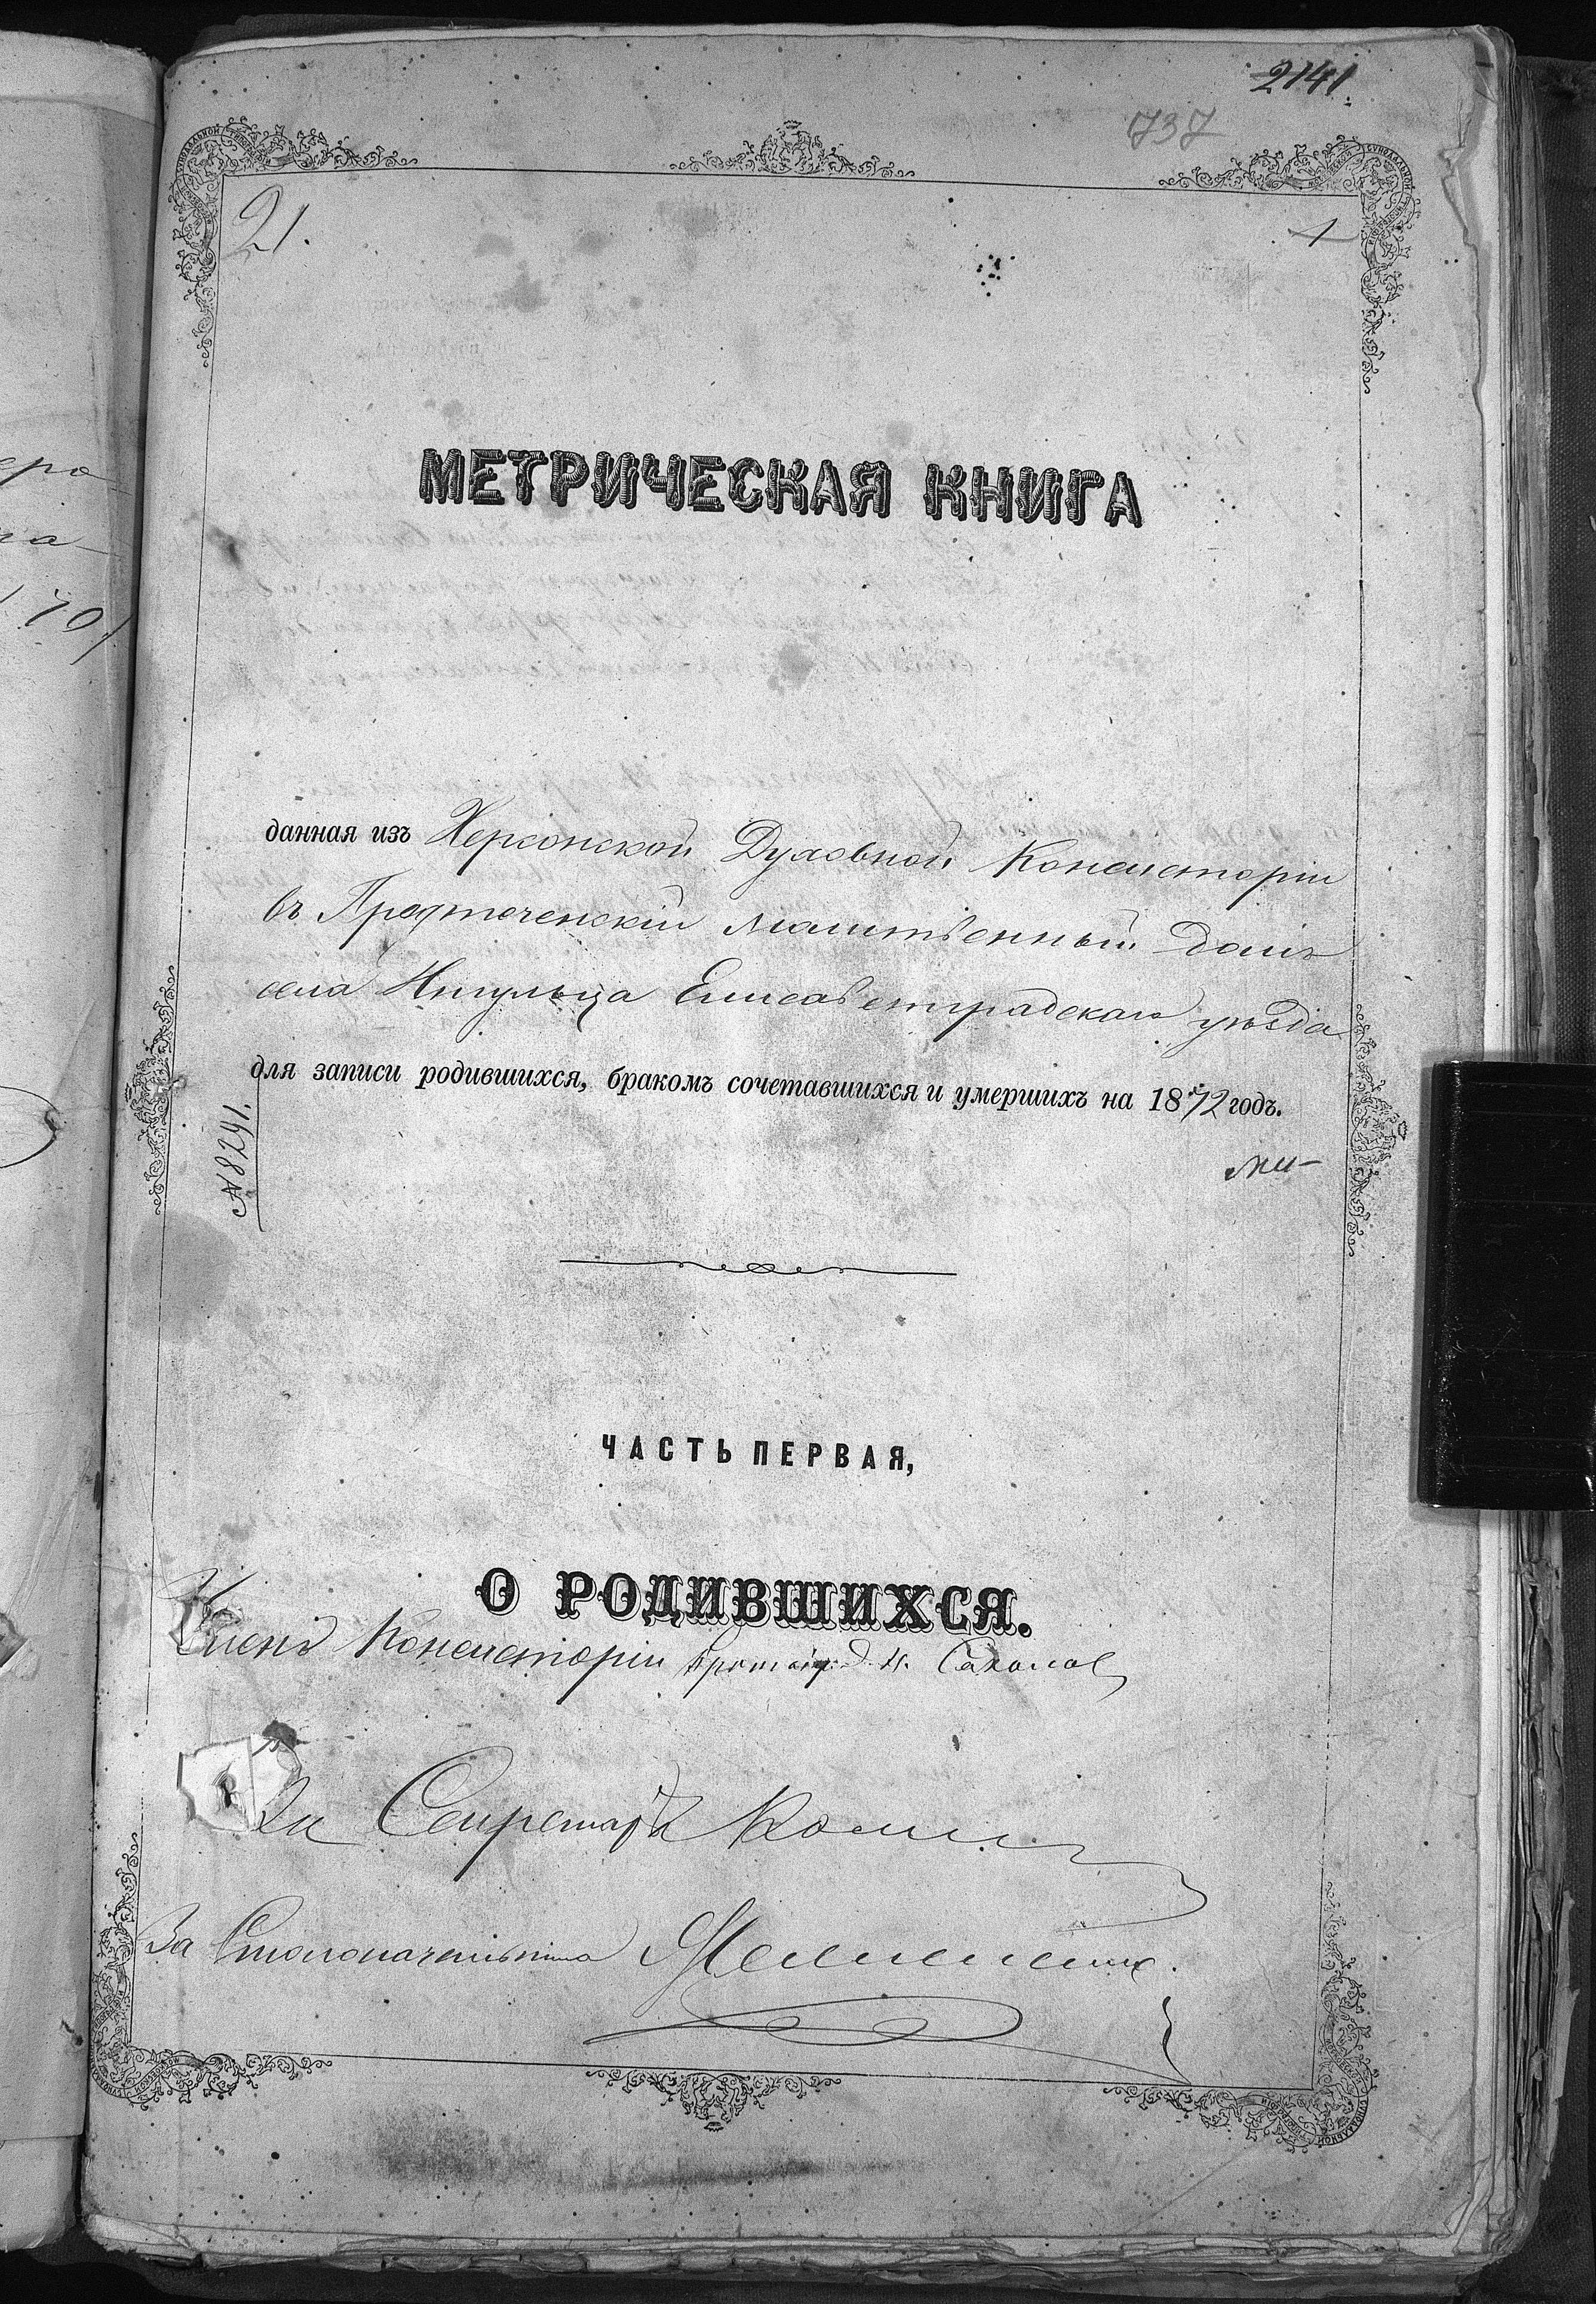 2141
737
21.
1
МЕТРИЧЕСКАЯ КНИГА
данная изъ Херсонской Духовной Консисторіи
въ Предтеченскій молитвенный домъ
села Ингульца Елисаветградскаго уѣзда
для записи родившихся, бракомъ сочетавшихся и умершихъ на 1872 годъ.
№ 8241.
ЧАСТЬ ПЕРВАЯ,
О РОДИВШИХСЯ.
Членъ Консисторіи Соколов
За Секретаря
За Столоначальника